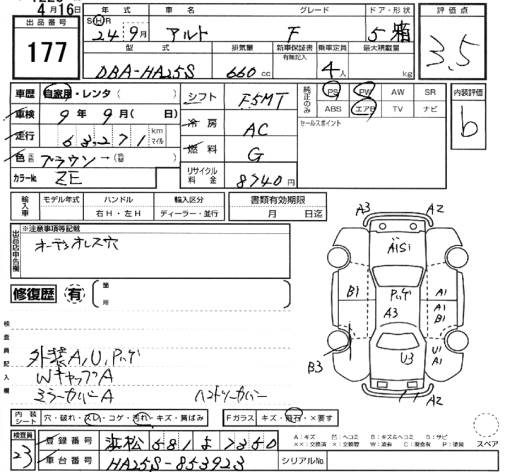 4月16日
出品番号
177
年式 車名 グレード ドア・形状
SⒽR 24年9月 アルト F 5 箱
型式 排気量 新車保証書 有無記入 乗車定員 最大積載量
DBA-HA25S 660cc 4人 kg
評価点
3.5
内装評価
b
車歴 自家用・レンタ( )
車検 9年9月( 日)
走行 68,271 km マイル
色 元色 ブラウン→(色替 )
カラーNo ZE
シフト F5MT
冷房 AC
燃料 G
リサイクル料金 8740円
純正のみ PS PW AW SR
ABS エアB TV ナビ
セールスポイント
輸入車 モデル年式 ハンドル 輸入区分 書類有効期限
右H・左H ディーラー・並行 月 日迄
出品店申告欄
※注意事項等記載
オーディオレス穴
修復歴 有 箇所
検査員記入欄
外装A,U,
WキャップA
ミラーカバーA
A3 A2
A1S1
B1 A1
A1
A3 B1
U1
B3 A1
U3
A2
内装シート 穴・破れ・スレ・コゲ・汚れ・キズ・黄ばみ Fガラス キズ・飛石・×要す
スペア
検査員 23
登録番号 浜松 581よ7350
A:キズ U:ヘコミ B:キズ&ヘコミ S:サビ
××:交換済 ×:交換要 W:波有 C:腐食 P:塗装
車台番号 HA25S-853923 シリアルNo